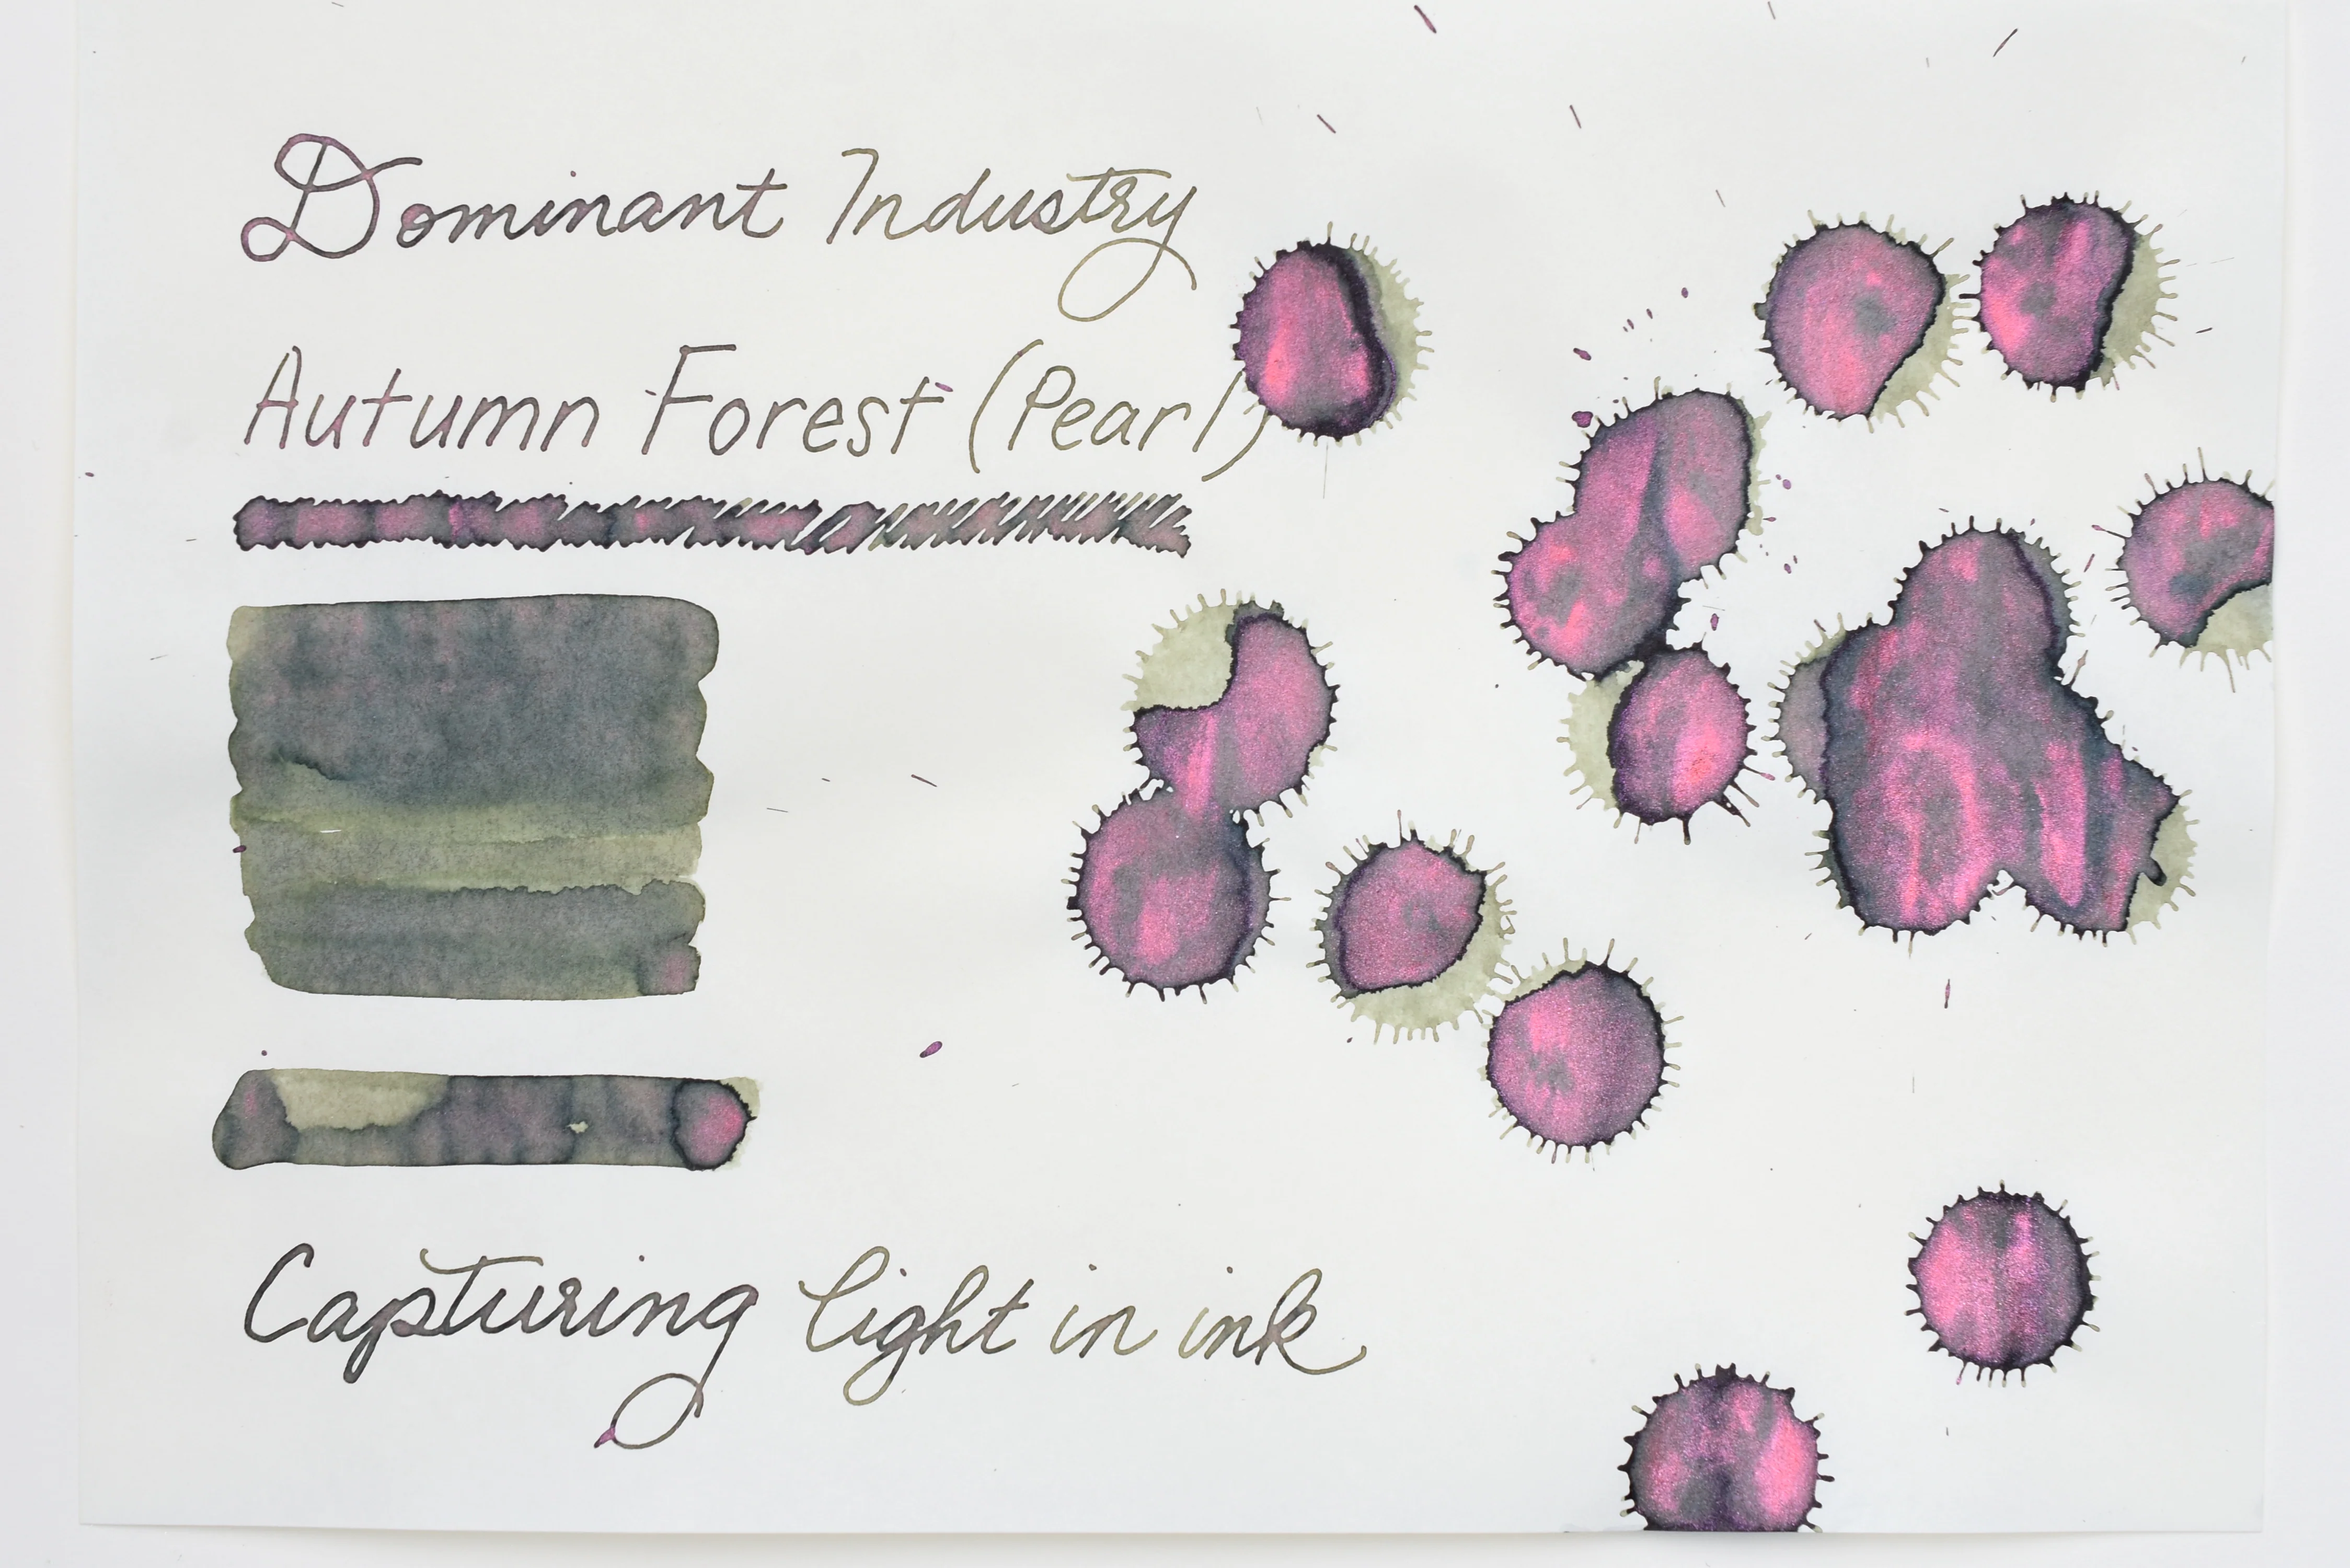 Dominant Industry
Autumn Forest (Pearl)
Capturing light in ink